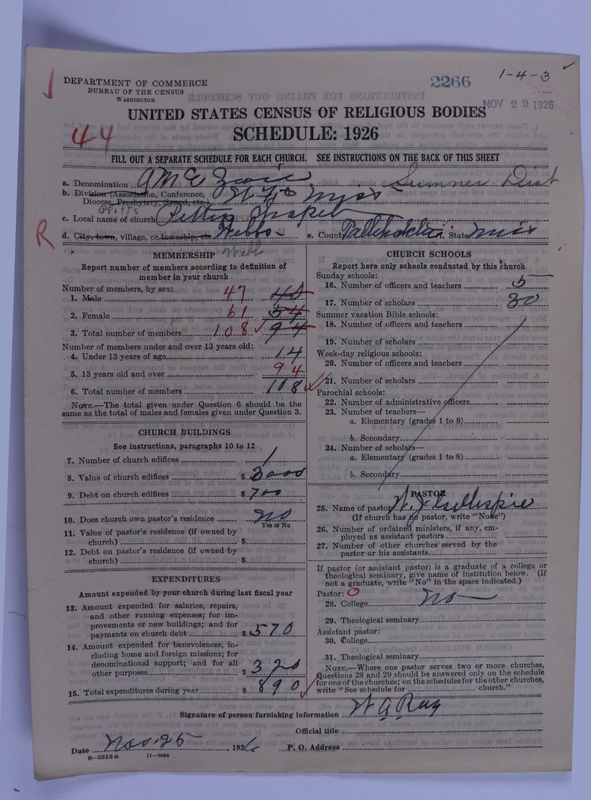 DEPARTMENT OF COMMERCE
BUREAU OF THE CENSUS
WASHINGTON
2266
1-4-3
NOV 29 1926
UNITED STATES CENSUS OF RELIGIOUS BODIES
SCHEDULE: 1926
44
FILL OUT A SEPARATE SCHEDULE FOR EACH CHURCH. SEE INSTRUCTIONS ON THE BACK OF THIS SHEET
a. Denomination A M E Zion
b. Division (Association, Conference, Diocese, Presbytery, Synod, etc.) Miss Sumner Dist
c. Local name of church Chapel
R
d. City, town, village, or township, etc. Webb
Webb
e. County State Miss
MEMBERSHIP
Report number of members according to definition of
member in your church
Number of members, by sex:
1. Male 47 40
2. Female 61 54
3. Total number of members 108 94
Number of members under and over 13 years old:
4. Under 13 years of age 14
5. 13 years old and over 94
6. Total number of members 108
NOTE.—The total given under Question 6 should be the
same as the total of males and females given under Question 3.
CHURCH BUILDINGS
See instructions, paragraphs 10 to 12
7. Number of church edifices 1
8. Value of church edifices $ 3000
9. Debt on church edifices $ 700
10. Does church own pastor's residence no
Yes or No
11. Value of pastor's residence (if owned by
church) $
12. Debt on pastor's residence (if owned by
church) $
EXPENDITURES
Amount expended by your church during last fiscal year
13. Amount expended for salaries, repairs,
and other running expenses; for im-
provements or new buildings; and for
payments on church debt $ 570
14. Amount expended for benevolences, in-
cluding home and foreign missions; for
denominational support; and for all
other purposes $ 320
15. Total expenditures during year $ 890
CHURCH SCHOOLS
Report here only schools conducted by this church
Sunday schools:
16. Number of officers and teachers 5
17. Number of scholars 30
Summer vacation Bible schools:
18. Number of officers and teachers
19. Number of scholars
Week-day religious schools:
20. Number of officers and teachers
21. Number of scholars
Parochial schools:
22. Number of administrative officers
23. Number of teachers—
a. Elementary (grades 1 to 8)
b. Secondary
24. Number of scholars—
a. Elementary (grades 1 to 8)
b. Secondary
PASTOR
25. Name of pastor Gillespie
(If church has no pastor, write "None")
26. Number of ordained ministers, if any, em-
ployed as assistant pastors
27. Number of other churches served by the
pastor or his assistants
If pastor (or assistant pastor) is a graduate of a college or
theological seminary, give name of institution below. (If
not a graduate, write "No" in the space indicated.)
Pastor: O
28. College no
29. Theological seminary
Assistant pastor:
30. College
31. Theological seminary
NOTE.—Where one pastor serves two or more churches,
Questions 28 and 29 should be answered only on the schedule
for one of the churches; on the schedules for the other churches,
write "See schedule for church."
Signature of person furnishing information W G Ray
Official title
Date Nov 25, 1926 P. O. Address
8-5518a 11-9084